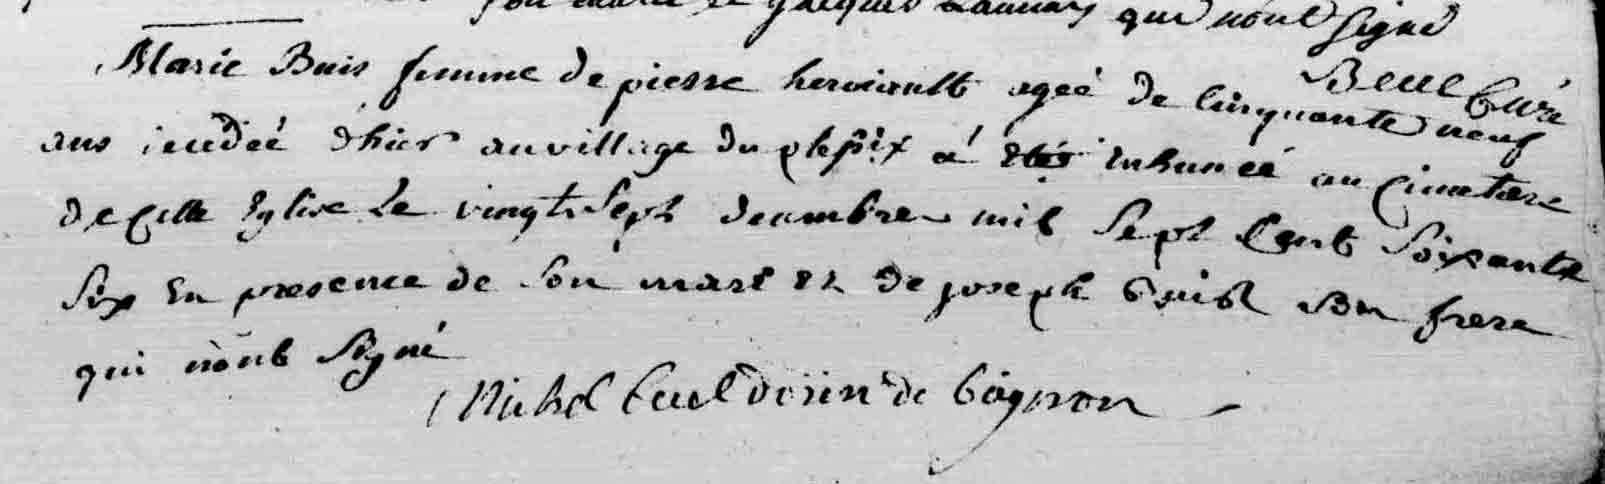 son mari et jacques Launay qui nont signé
Beul Curé
Marie Buis femme de pierre heroiault agée de Cinquante neuf
ans decedéé dhier au village du plessix a été Inhumée au Cimetiere
de Cette Eglise Le vingt Sept decembre mil Sept Cent Soixante
Six En presence de Son mari et de joseph buist Son frere
qui nont Signé
Michel de